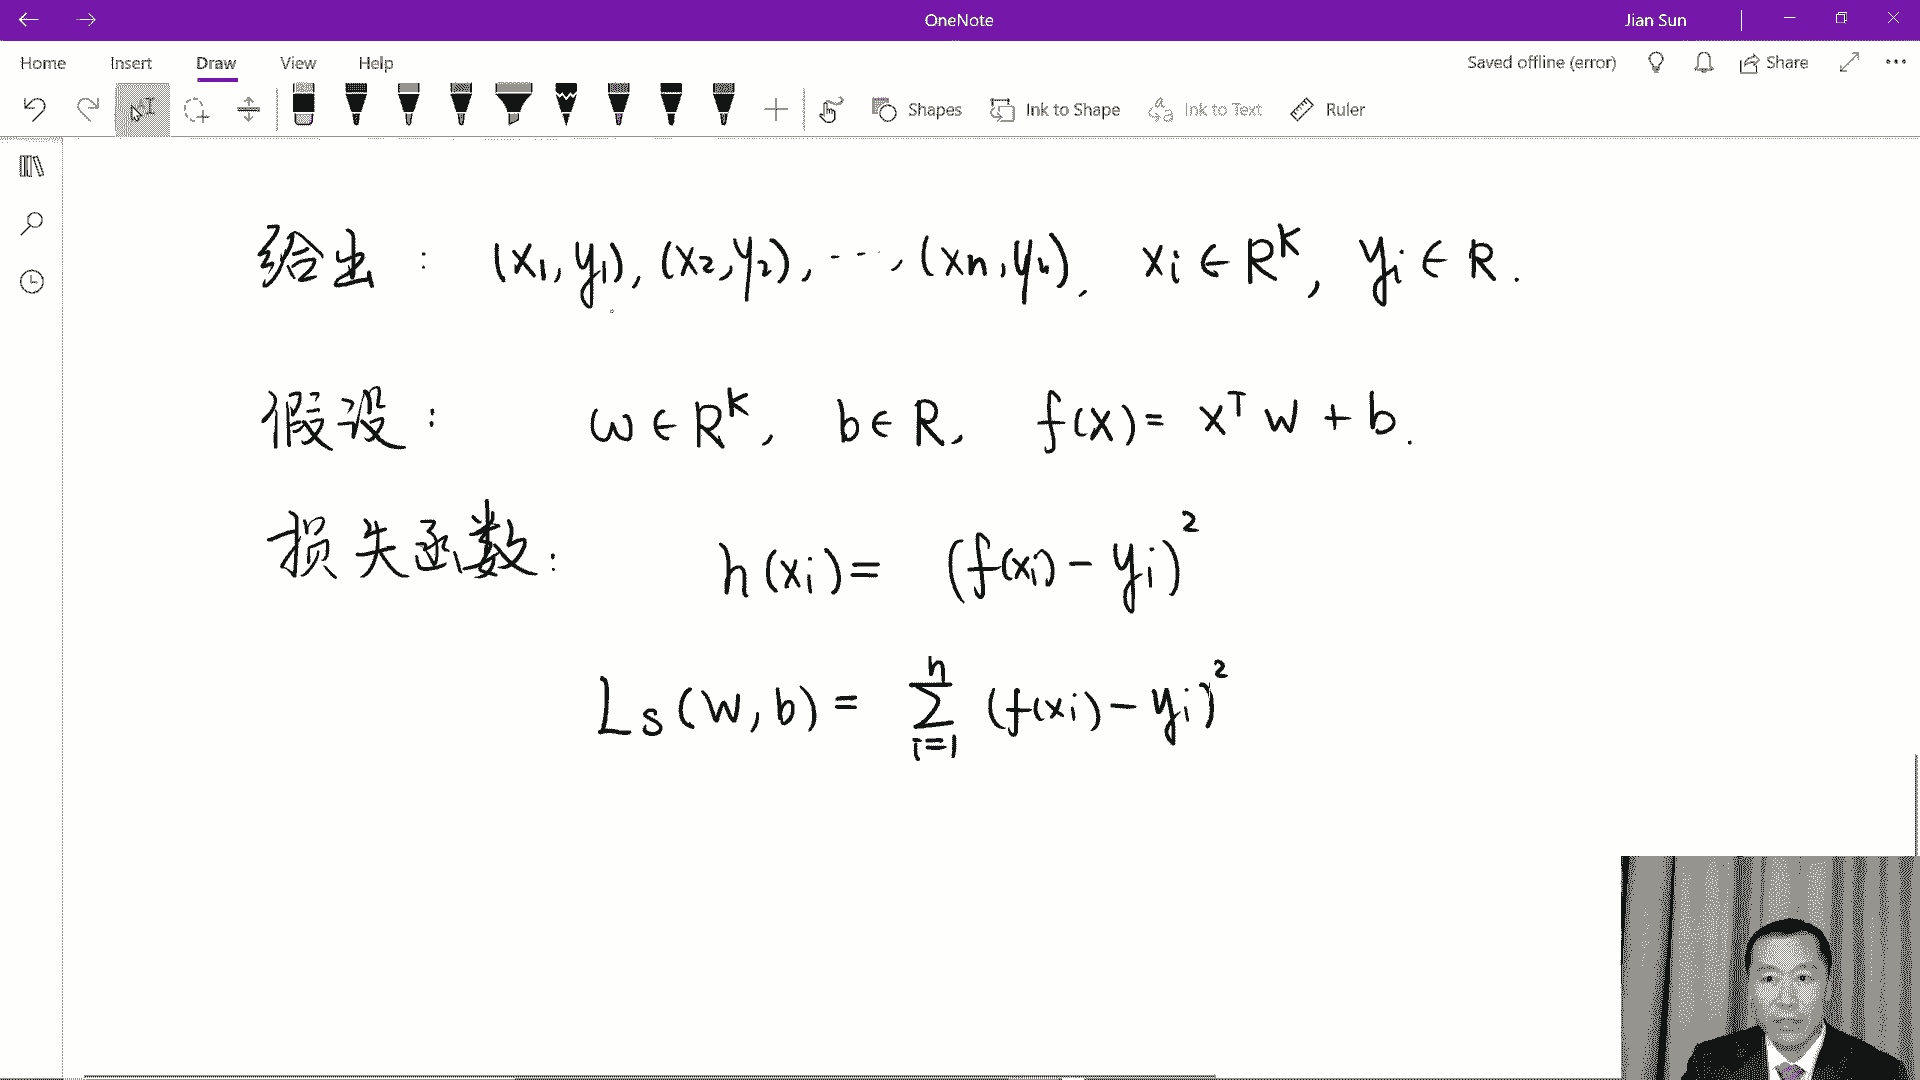 OneNote
Jian Sun
Home Insert Draw View Help
Saved offline (error) Share
Shapes Ink to Shape Ink to Text Ruler
给出 : (x₁,y₁), (x₂,y₂), ···, (xn,yn). xi ∈ R^K, yi ∈ R.
假设 : w ∈ R^K, b ∈ R, f(x) = x^T w + b.
损失函数 : h(xi) = (f(xi) - yi)²
Ls(w,b) = ∑_{i=1}^{n} (f(xi) - yi)²